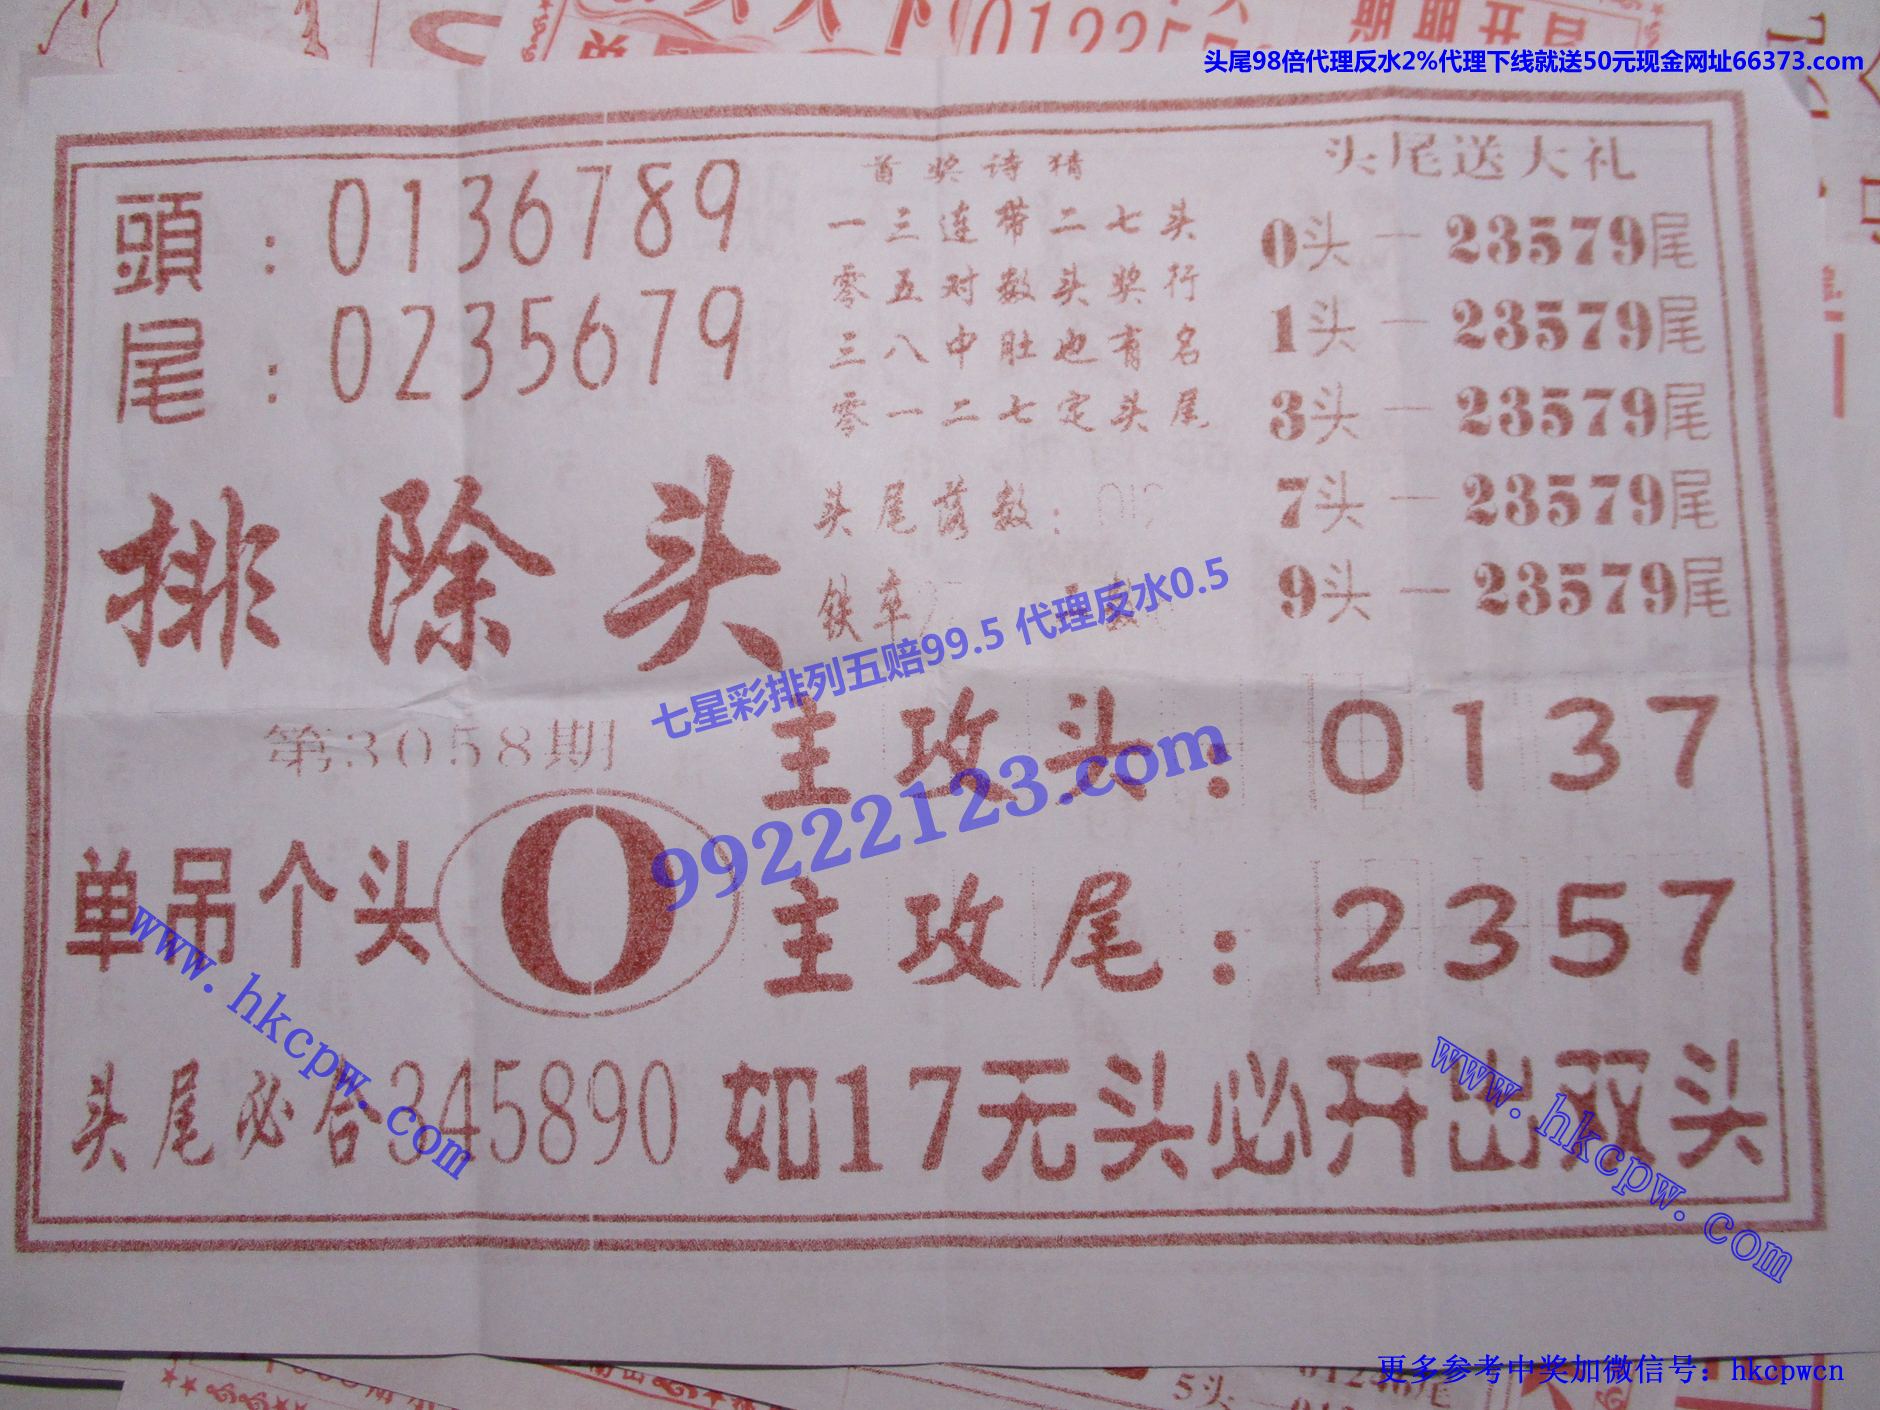 头尾98倍代理反水2%代理下线就送50元现金网址66373.com
頭：0136789
尾：0235679
首奖诗猜
一三连带二七头
零五对数头奖行
三八中肚也有名
零一二七定头尾
头尾落数：012
铁率
头尾送大礼
0头一23579尾
1头一23579尾
3头一23579尾
7头一23579尾
9头一23579尾
排除头
七星彩排列五赔99.5 代理反水0.5
99222123.com
第3058期
主攻头：0137
单吊个头 0
主攻尾：2357
头尾必合345890
如17无头必开出双头
www.hkcpw.com
www.hkcpw.com
更多参考中奖加微信号：hkcpwcn
5头